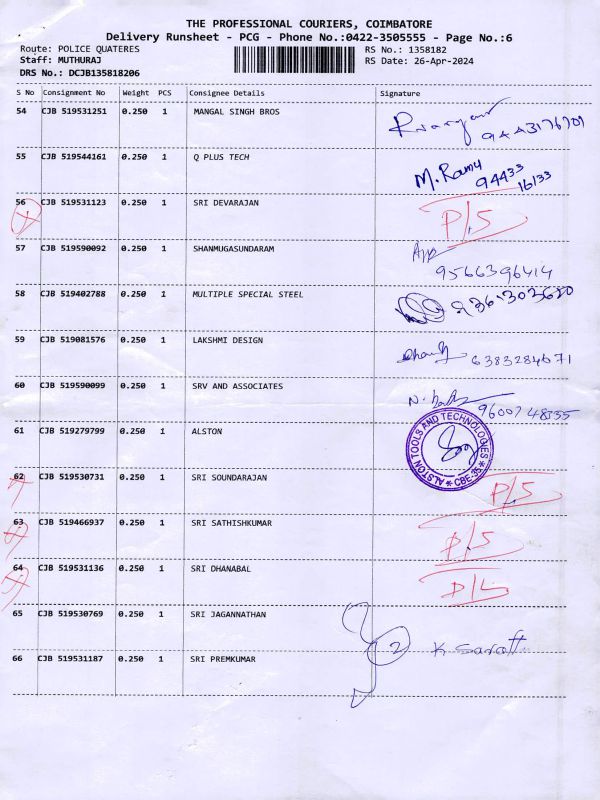 THE PROFESSIONAL COURIERS, COIMBATORE
Delivery Runsheet - PCG - Phone No.:0422-3505555 - Page No.:6
Route: POLICE QUATERES RS No.: 1358182
Staff: MUTHURAJ RS Date: 26-Apr-2024
DRS No.: DCJB135818206
S No Consignment No Weight PCS Consignee Details Signature
54 CJB 519531251 0.250 1 MANGAL SINGH BROS
9443176701
55 CJB 519544161 0.250 1 Q PLUS TECH M. Ramu
94433
16133
56 CJB 519531123 0.250 1 SRI DEVARAJAN P/S
57 CJB 519590092 0.250 1 SHANMUGASUNDARAM
9566396414
58 CJB 519402788 0.250 1 MULTIPLE SPECIAL STEEL
59 CJB 519081576 0.250 1 LAKSHMI DESIGN 6383284671
60 CJB 519590099 0.250 1 SRV AND ASSOCIATES
9600748335
61 CJB 519279799 0.250 1 ALSTON ALSTON TOOLS AND TECHNOLOGIES CBE-35
62 CJB 519530731 0.250 1 SRI SOUNDARAJAN P/S
63 CJB 519466937 0.250 1 SRI SATHISHKUMAR P/S
64 CJB 519531136 0.250 1 SRI DHANABAL D/L
65 CJB 519530769 0.250 1 SRI JAGANNATHAN
2 K Sarath
66 CJB 519531187 0.250 1 SRI PREMKUMAR